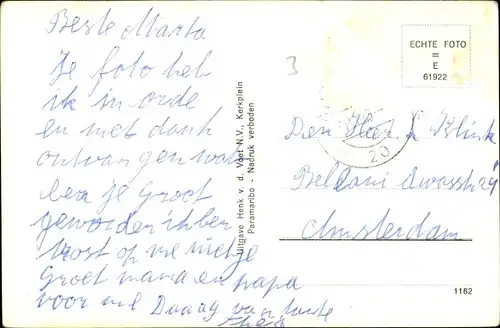 Beste Marta
Je foto heb
ik in orde
en met dank
ontvangen wat
ben je Groot
geworden ik ben
trost op me nietje
Groet mama en papa
voor me Daaag van tante
3
Uitgave Henk v. d. Voet N.V., Kerkplein
Paramaribo - Nadruk verboden
ECHTE FOTO
=
E
61922
20
Den Heer L Klink
24
Amsterdam
1162